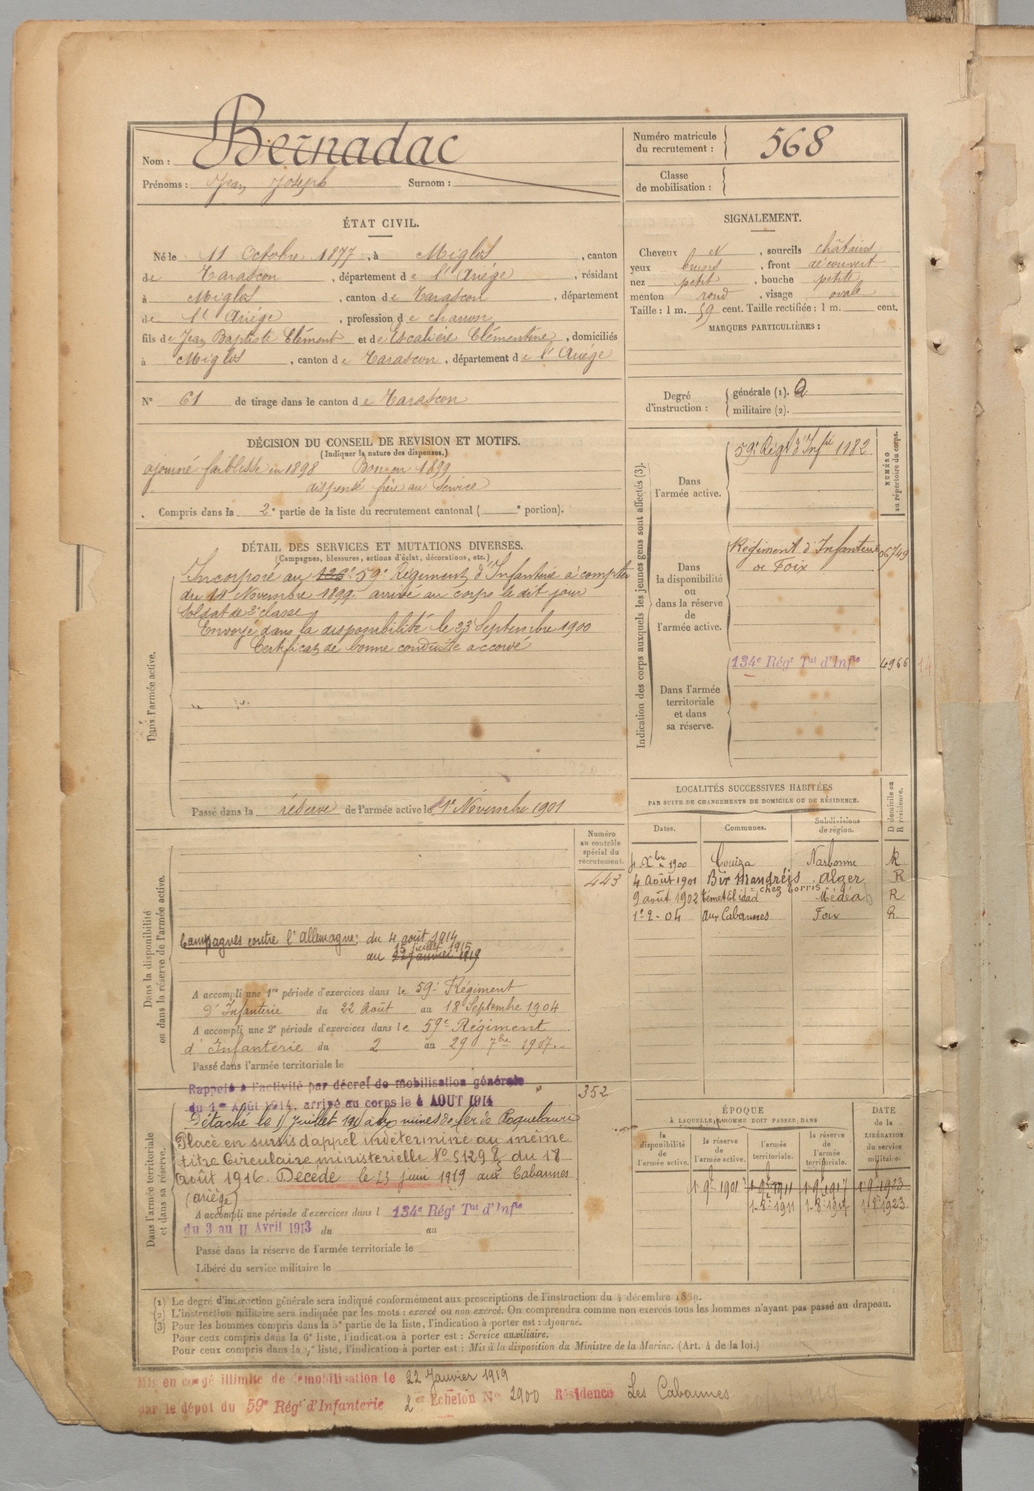 Nom : Bernadac
Prénoms : Jean Joseph Surnom :
Numéro matricule du recrutement : 568
Classe de mobilisation :
ÉTAT CIVIL.
Né le 11 Octobre 1877, à Miglos, canton
de Tarascon, département de l'Ariége, résidant
à Miglos, canton de Tarascon, département
de l'Ariége, profession de charron
fils de Jean Baptiste Clément et de Escalière Clémentine, domiciliés
à Miglos, canton de Tarascon, département de l'Ariége
N° 61 de tirage dans le canton de Tarascon
SIGNALEMENT.
Cheveux N, sourcils châtains
yeux, front découvert
nez petit, bouche petite
menton rond, visage ovale
Taille : 1 m. 59 cent. Taille rectifiée : 1 m. cent.
MARQUES PARTICULIÈRES :
Degré d'instruction : générale (1). 2
militaire (2).
DÉCISION DU CONSEIL DE REVISION ET MOTIFS.
(Indiquer la nature des dispenses.)
ajourné faiblesse en 1898 Bon en 1899
dispensé frère au service
Compris dans la 2e partie de la liste du recrutement cantonal ( e portion).
DÉTAIL DES SERVICES ET MUTATIONS DIVERSES.
(Campagnes, blessures, actions d'éclat, décorations, etc.)
Dans l'armée active.
Incorporé au 59e Régiment d'Infanterie à compter
du 14 Novembre 1899 arrivé au corps le dit jour
Soldat de 2e classe
Envoyé dans la disponibilité le 23 Septembre 1900
Certificat de bonne conduite accordé
Passé dans la réserve de l'armée active le 1er Novembre 1901
Indication des corps auxquels les jeunes gens sont affectés (3).
NUMÉRO au répertoire du corps.
Dans l'armée active.
59e Régt d'Infie 1182
Dans la disponibilité ou dans la réserve de l'armée active.
Régiment d'Infanterie
de Foix
Dans l'armée territoriale et dans sa réserve.
134e Régt Tal d'Infie 4966
LOCALITÉS SUCCESSIVES HABITÉES
PAR SUITE DE CHANGEMENTS DE DOMICILE OU DE RÉSIDENCE.
Dates. Communes. Subdivisions de région. D domicile ou R résidence.
Xbre 1900 Couiza Narbonne R
4 Août 1901 Bir Mandréis Alger R
9 août 1902 chez Médéa R
1er 2 - 04 aux Cabannes Foix R
Dans la disponibilité ou dans la réserve de l'armée active.
Numéro au contrôle spécial du recrutement.
443
Campagnes contre l'Allemagne : du 4 août 1914
15 juillet 1915
au 22 janvier 1919
A accompli une 1re période d'exercices dans le 59e Régiment
d'Infanterie du 22 Août au 18 Septembre 1904
A accompli une 2e période d'exercices dans le 59e Régiment
d'Infanterie du 2 au 29 7bre 1907
Passé dans l'armée territoriale le
Dans l'armée territoriale et dans sa réserve.
Rappelé à l'activité par décret de mobilisation générale
du 1er Août 1914, arrivé au corps le 4 AOUT 1914
352
Détaché le Juillet aux mines de fer de Roquelaure
Placé en sursis d'appel indéterminé au même
titre Circulaire ministérielle No 5129 du 18
Août 1916. Décédé le 23 juin 1919 aux Cabannes
(Ariège)
A accompli une période d'exercices dans l 134e Régt Tal d'Infie
du 3 au 11 Avril 1913 du au
Passé dans la réserve de l'armée territoriale le
Libéré du service militaire le
ÉPOQUE
À LAQUELLE L'HOMME DOIT PASSER DANS
la disponibilité de l'armée active. la réserve de l'armée active. l'armée territoriale. la réserve de l'armée territoriale.
DATE de la LIBÉRATION du service militaire.
1 9e 1901 1 9e 1911 1 9e 1917 1 9e 1923
1-8e 1911 1-8e 1917 1 8e 1923
(1) Le degré d'instruction générale sera indiqué conformément aux prescriptions de l'instruction du 4 décembre 1889.
(2) L'instruction militaire sera indiquée par les mots : exercé ou non exercé. On comprendra comme non exercés tous les hommes n'ayant pas passé au drapeau.
(3) Pour les hommes compris dans la 5e partie de la liste, l'indication à porter est : Ajourné.
Pour ceux compris dans la 6e liste, l'indication à porter est : Service auxiliaire.
Pour ceux compris dans la 7e liste, l'indication à porter est : Mis à la disposition du Ministre de la Marine. (Art. 4 de la loi.)
Mis en congé illimité de démobilisation le 22 Janvier 1919
par le dépôt du 59e Régt d'Infanterie 2e Echelon No 2900 Résidence Les Cabannes